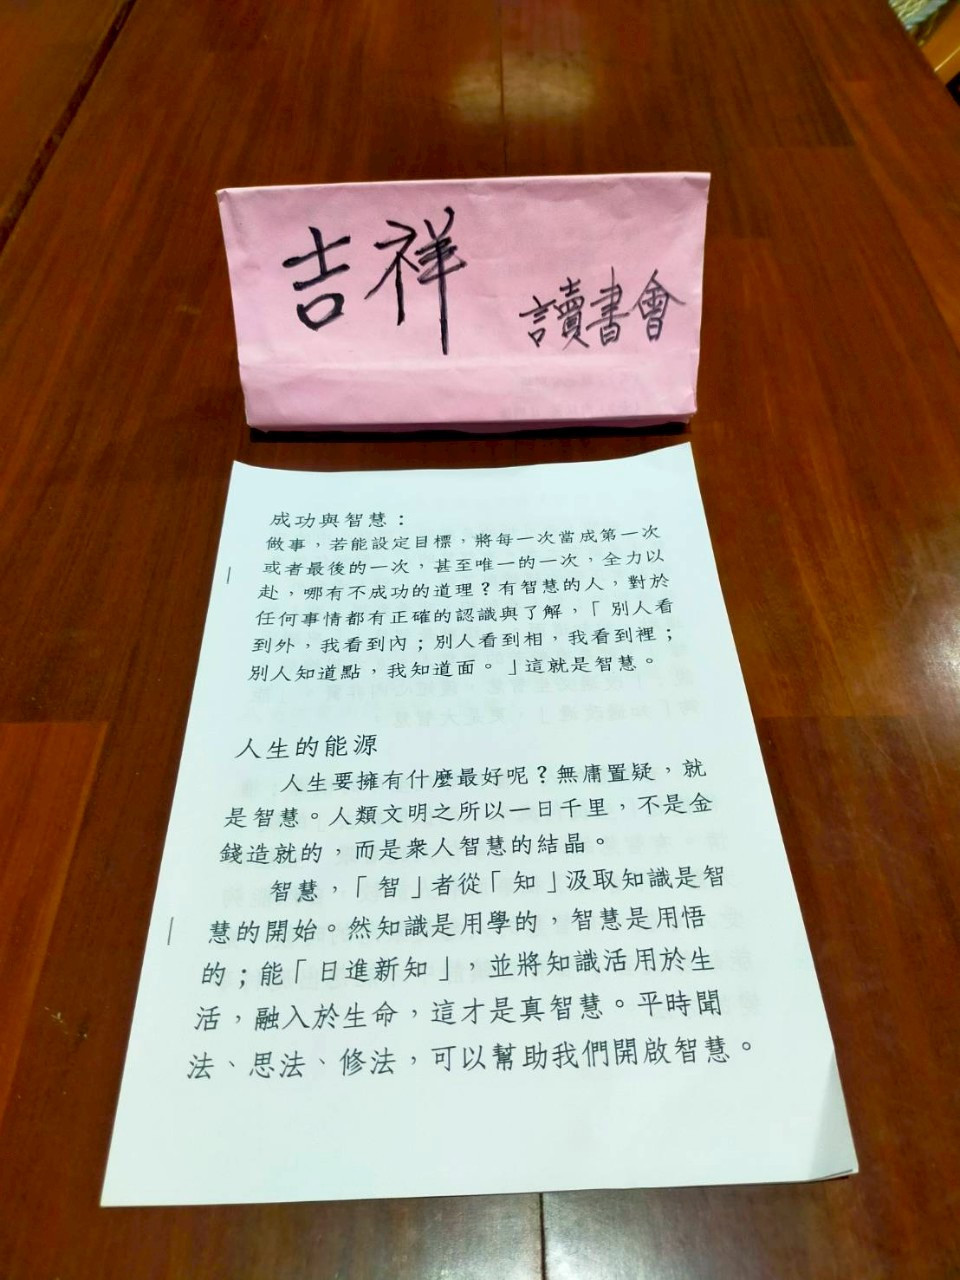 吉祥 讀書會
成功與智慧：
做事，若能設定目標，將每一次當成第一次
或者最後的一次，甚至唯一的一次，全力以
赴，哪有不成功的道理？有智慧的人，對於
任何事情都有正確的認識與了解，「別人看
到外，我看到內；別人看到相，我看到裡；
別人知道點，我知道面。」這就是智慧。
人生的能源
人生要擁有什麼最好呢？無庸置疑，就
是智慧。人類文明之所以一日千里，不是金
錢造就的，而是衆人智慧的結晶。
智慧，「智」者從「知」汲取知識是智
慧的開始。然知識是用學的，智慧是用悟
的；能「日進新知」，並將知識活用於生
活，融入於生命，這才是真智慧。平時聞
法、思法、修法，可以幫助我們開啟智慧。